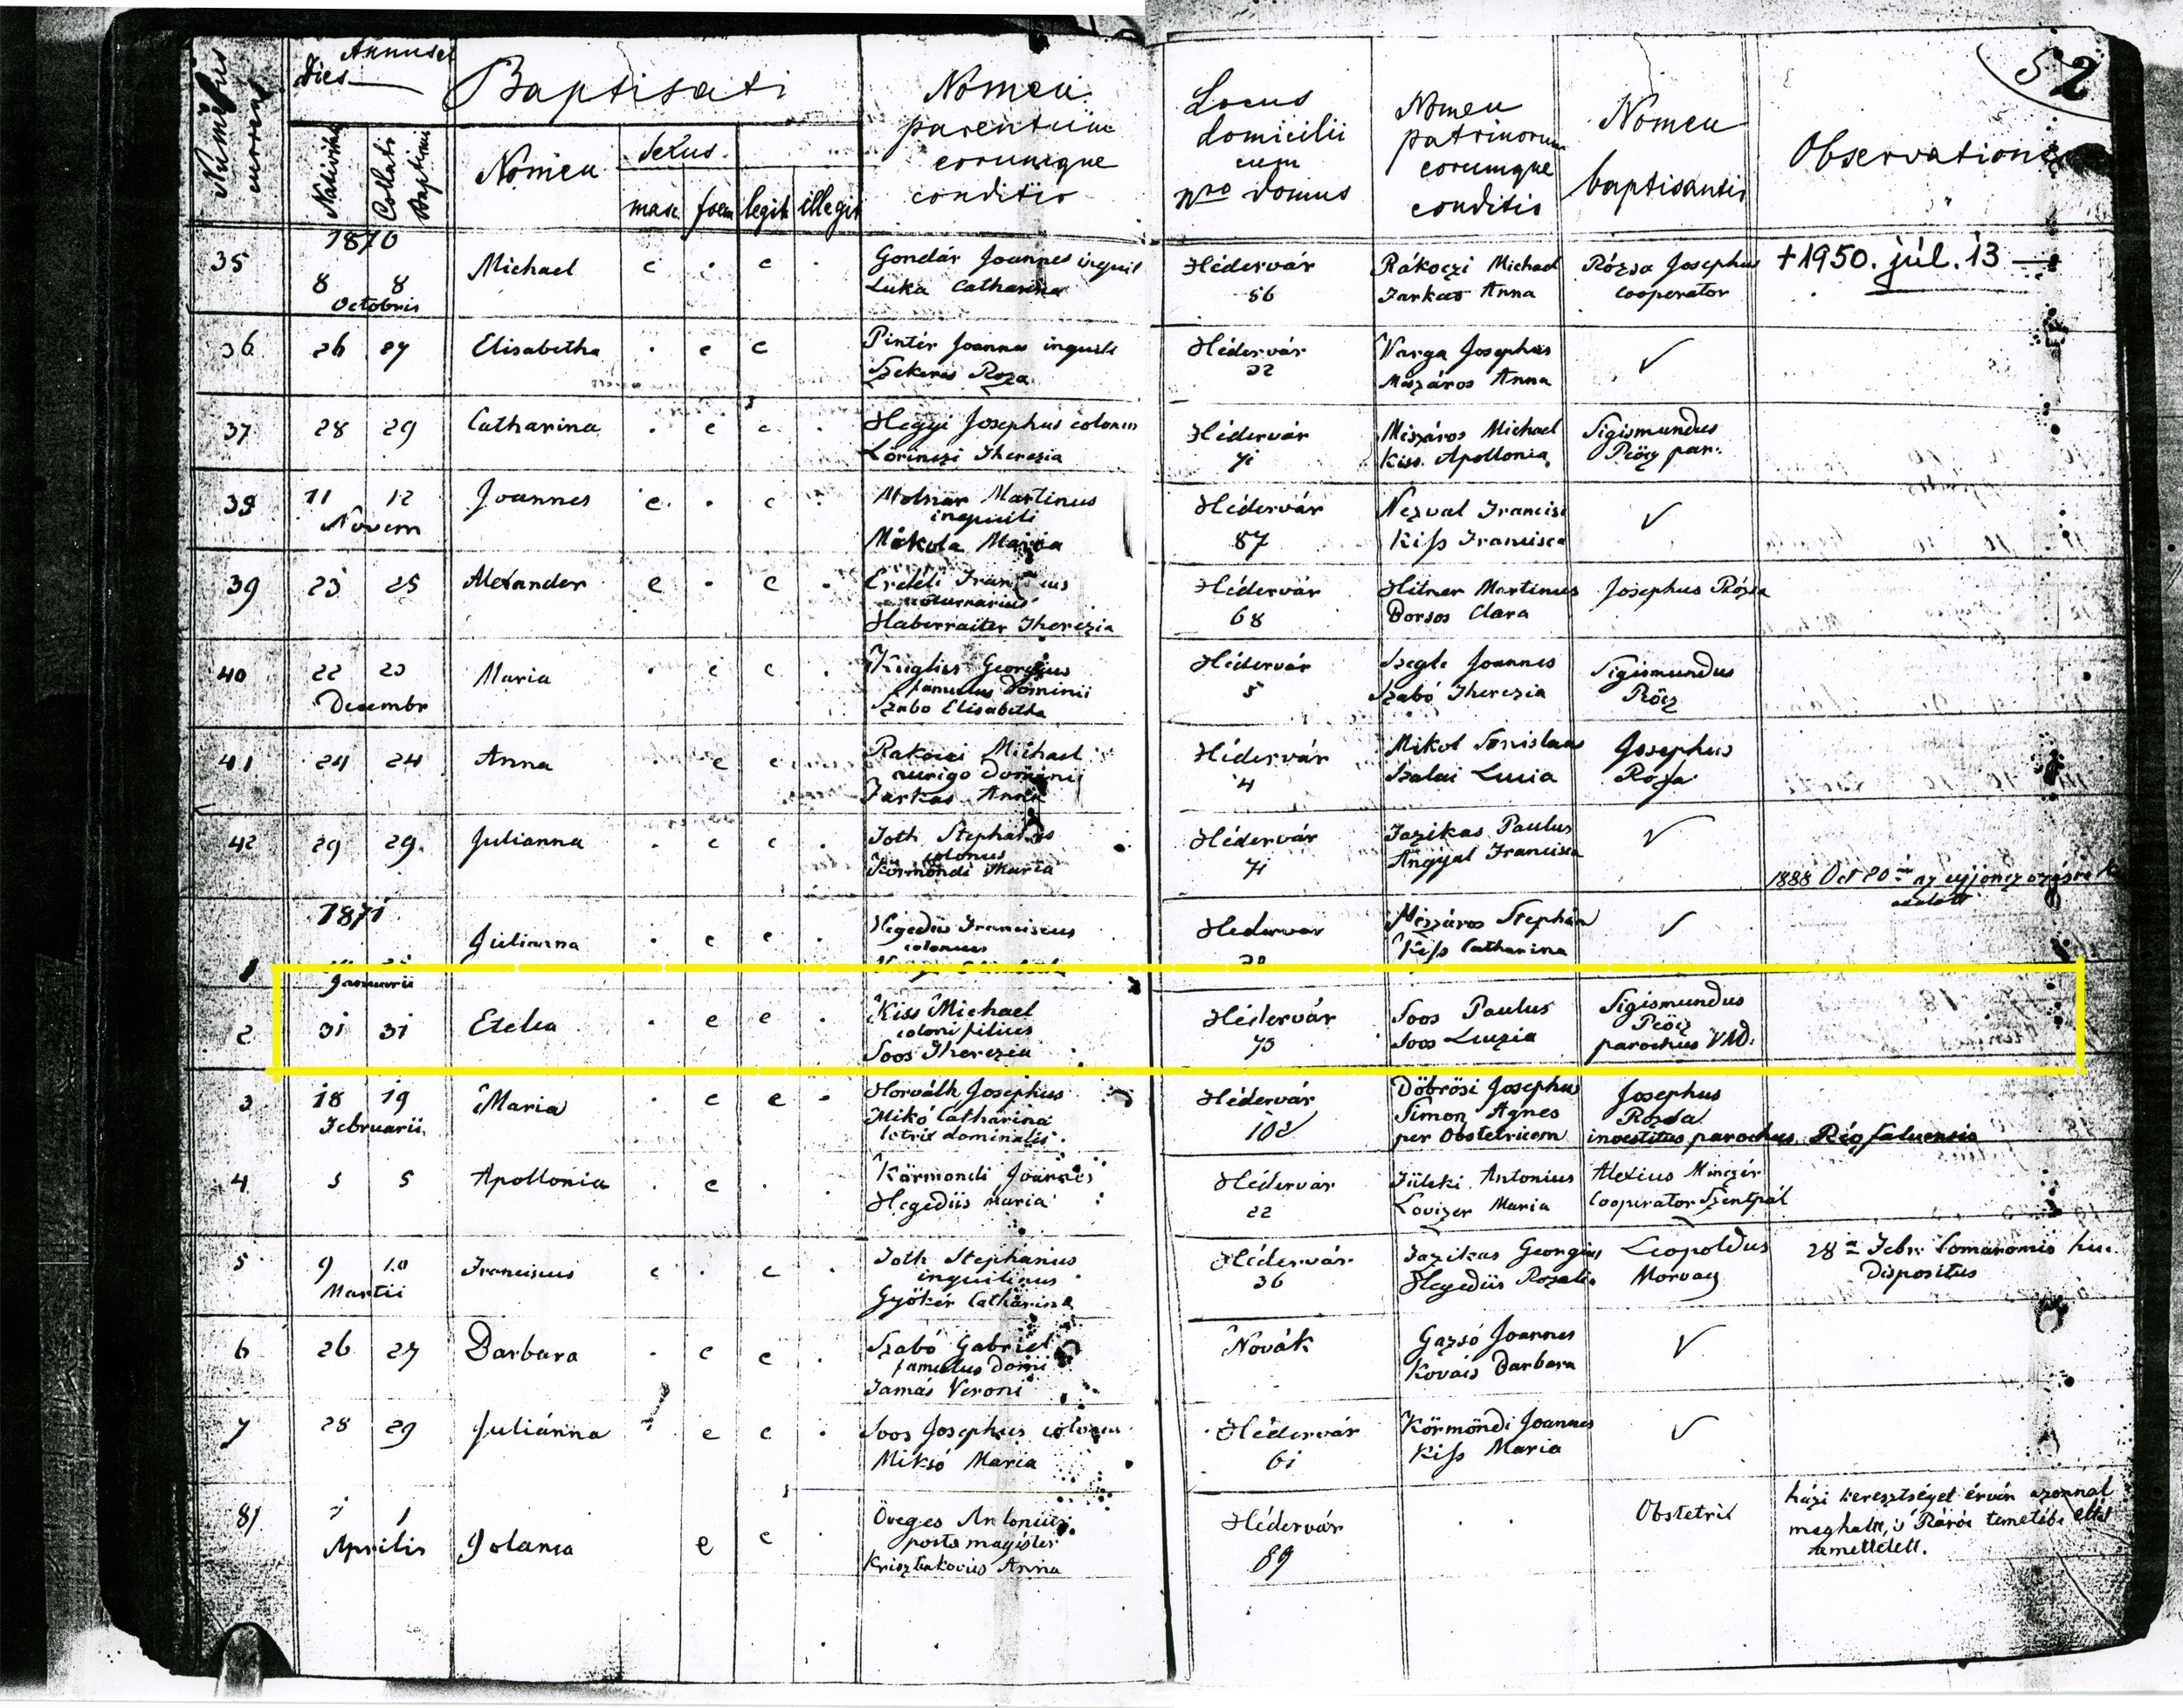 52
Numerus currens
Dies Annus et
Baptisati
Nomen parentum eorumque conditio
Locus domicilii cum nro domus
Nomen patrinorum eorumque conditio
Nomen baptisantis
Observationes
Nativitatis
Collati Baptismi
Nomen
Sexus
masc foem legit illegit
1870
35 8 8 Octobris Michael c . c . Gondár Joannes inquil
Luka Catharina
Hédervár 56
Rákoczi Michael
Farkas Anna
Rózsa Josephus cooperator
+1950. júl. 13 —
36 26 27 Elisabetha . c c
Pintér Joannes inquil
Szekeres Roza
Hédervár 32
Varga Josephus
Mészáros Anna
✓
37 28 29 Catharina . c c .
Hegyi Josephus colonus
Lörinczi Therezia
Hédervár 71
Mészáros Michael
Kiss Apollonia
Sigismundus Rócz par.
38 11 12 Novem Joannes c . c .
Molnar Martinus
inquili
Mákola Maria
Hédervár 87
Nezval Francisc
Kiss Francisca
✓
39 23 25 Alexander c . c .
Erdéli Franciscus
Haberraiter Therezia
Hédervár 68
Hitner Martinus
Borsos Clara
Josephus Rózsa
40 22 23 Decembr Maria . c c .
Kuglics Georgius
famulus Dominii
Szabo Elisabetha
Hédervár 5
Szegle Joannes
Szabó Therezia
Sigismundus
41 24 24 Anna . c c
Rakoczi Michael
auriga Dominii
Farkas Anna
Hédervár 4
Mikol Stanislaus
Szalai Lucia
Josephus Rózsa
42 29 29 Julianna . c c .
Toth Stephanus
colonus
Körmöndi Maria
Hédervár 71
Fazikas Paulus
Angyal Francisca
✓
1888 Oct 20
1871
1 Januarii Julianna . c c .
Hegedüs Franciscus
colonus
Hédervár
Mészáros Stephan
Kiss Catharina
✓
2 31 31 Etelea . c c .
Kiss Michael
coloni filius
Soos Therezia
Hédervár 75
Soos Paulus
Soos Luczia
Sigismundus
parochus VAD.
3 18 19 Februarii Maria . c c .
Horváth Josephus
Mikó Catharina
dominalis
Hédervár 102
Döbrösi Josephus
Simon Agnes
per Obstetricem
Josephus
Rózsa
investitus parochus Rigfaluensis
4 5 5 Apollonia . c . .
Körmondi Joannes
Hegedüs maria
Hédervár 22
Füleki Antonius
Lovizer Maria
Alexius
Cooperator Szentpál
5 9 10 Martii Franciscus c . c
Toth Stephanus
inquilinus
Gyökér Catharina
Hédervár 36
Fazikas Georgius
Hegedüs Rozalia
Leopoldus
28a Febr. Comaromio huc
Dispositus
6 26 27 Barbara . c c .
Szabó Gabriel
famulus Domi
Tamás Veroni
Novák
Gazsó Joannes
Kovács Barbara
✓
7 28 29 Juliánna . c c .
Soos Josephus colonus
Miksó Maria
Hédervár 61
Körmöndi Joannes
Kiss Maria
✓
8 1 1 Aprilis Jolanea c c .
Öveges Antonius
posta magister
Krisztakovics Anna
Hédervár 89
Obstetrix
házi keresztséget érvén azonnal
meghalt, s Rárói temetőbe